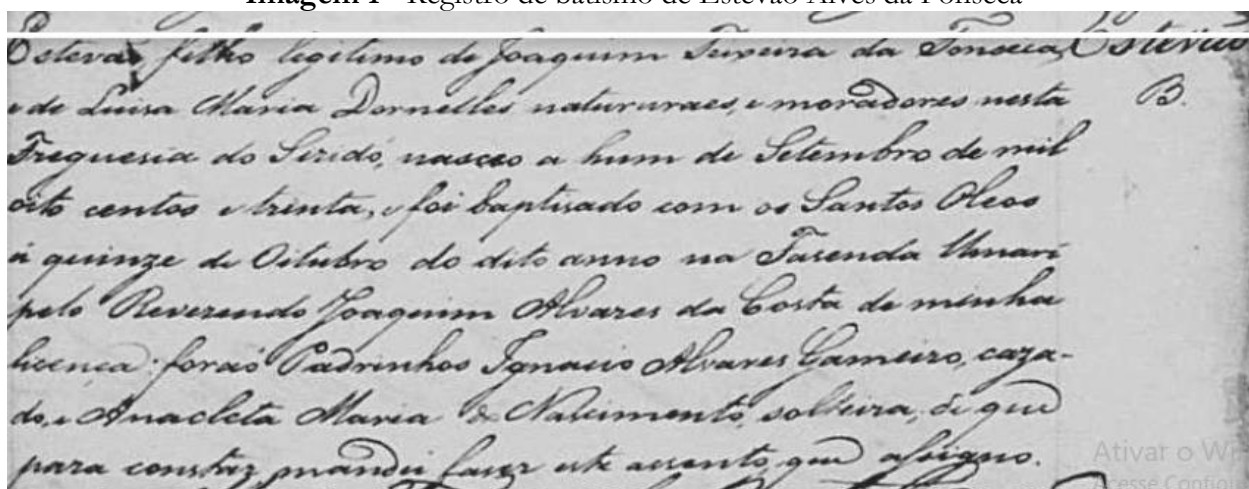 Imagem 1 - Registro de batismo de Estevão Alves da Fonseca
Estevaõ filho legitimo de Joaquim Teixeira da Fonseca, Estevaõ
e de Luisa Maria Dornelles natururaes, e moradores nesta B.
Freguesia do Seridó, nasceo a hum de Setembro de mil
oito centos e trinta, e foi baptisado com os Santos Oleos
á quinze de Oitubro do dito anno na Fasenda Umari
pelo Reverendo Joaquim Alvares da Costa de minha
licença: foraõ Padrinhos Ignacio Alvares Gameiro, caza-
do, e Anacleta Maria do Nascimento, solteira, de que
para constar, mandei faser este assento, que assigno.
Ativar o Wi
Acesse Config